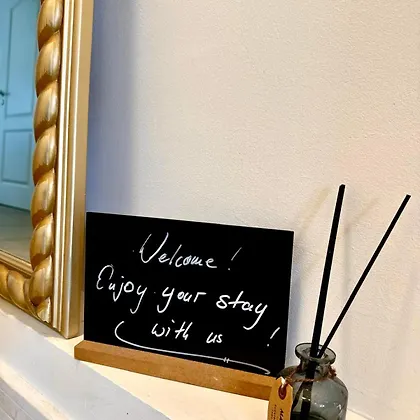 Welcome!
Enjoy your stay
with us!